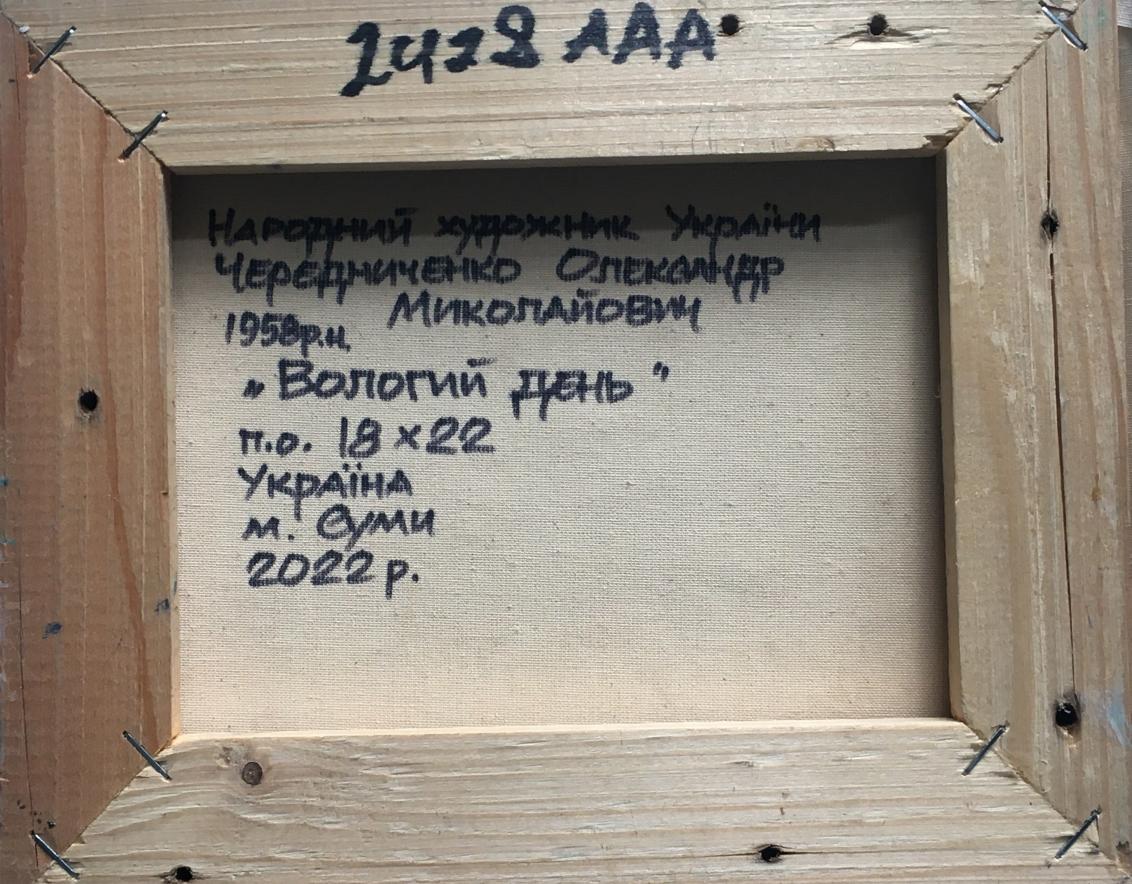 2428 ААА
Народний художник України
Чередниченко Олександр
Миколайович
1958р.н.
„Вологий день"
п.о. 18×22
Україна
м. Суми
2022 р.